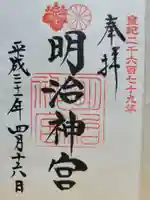 皇紀二千六百七十九年
奉拝
明治神宮
平成三十一年四月十六日